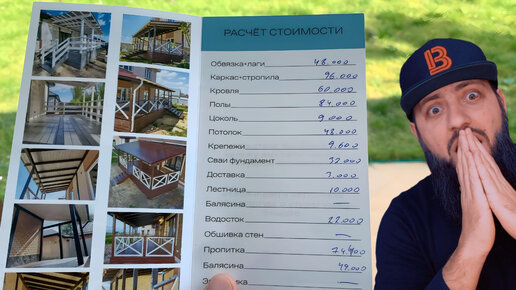 РАСЧЁТ СТОИМОСТИ
Обвязка+лаги 48.000
Каркас+стропила 96.000
Кровля 60.000
Полы 84.000
Цоколь 9.000
Потолок 48.000
Крепежи 9.600
Сваи фундамент 32.000
Доставка 7.000
Лестница 10.000
Балясина —
Водосток 22.000
Обшивка стен —
Пропитка
Балясина 49.000
B